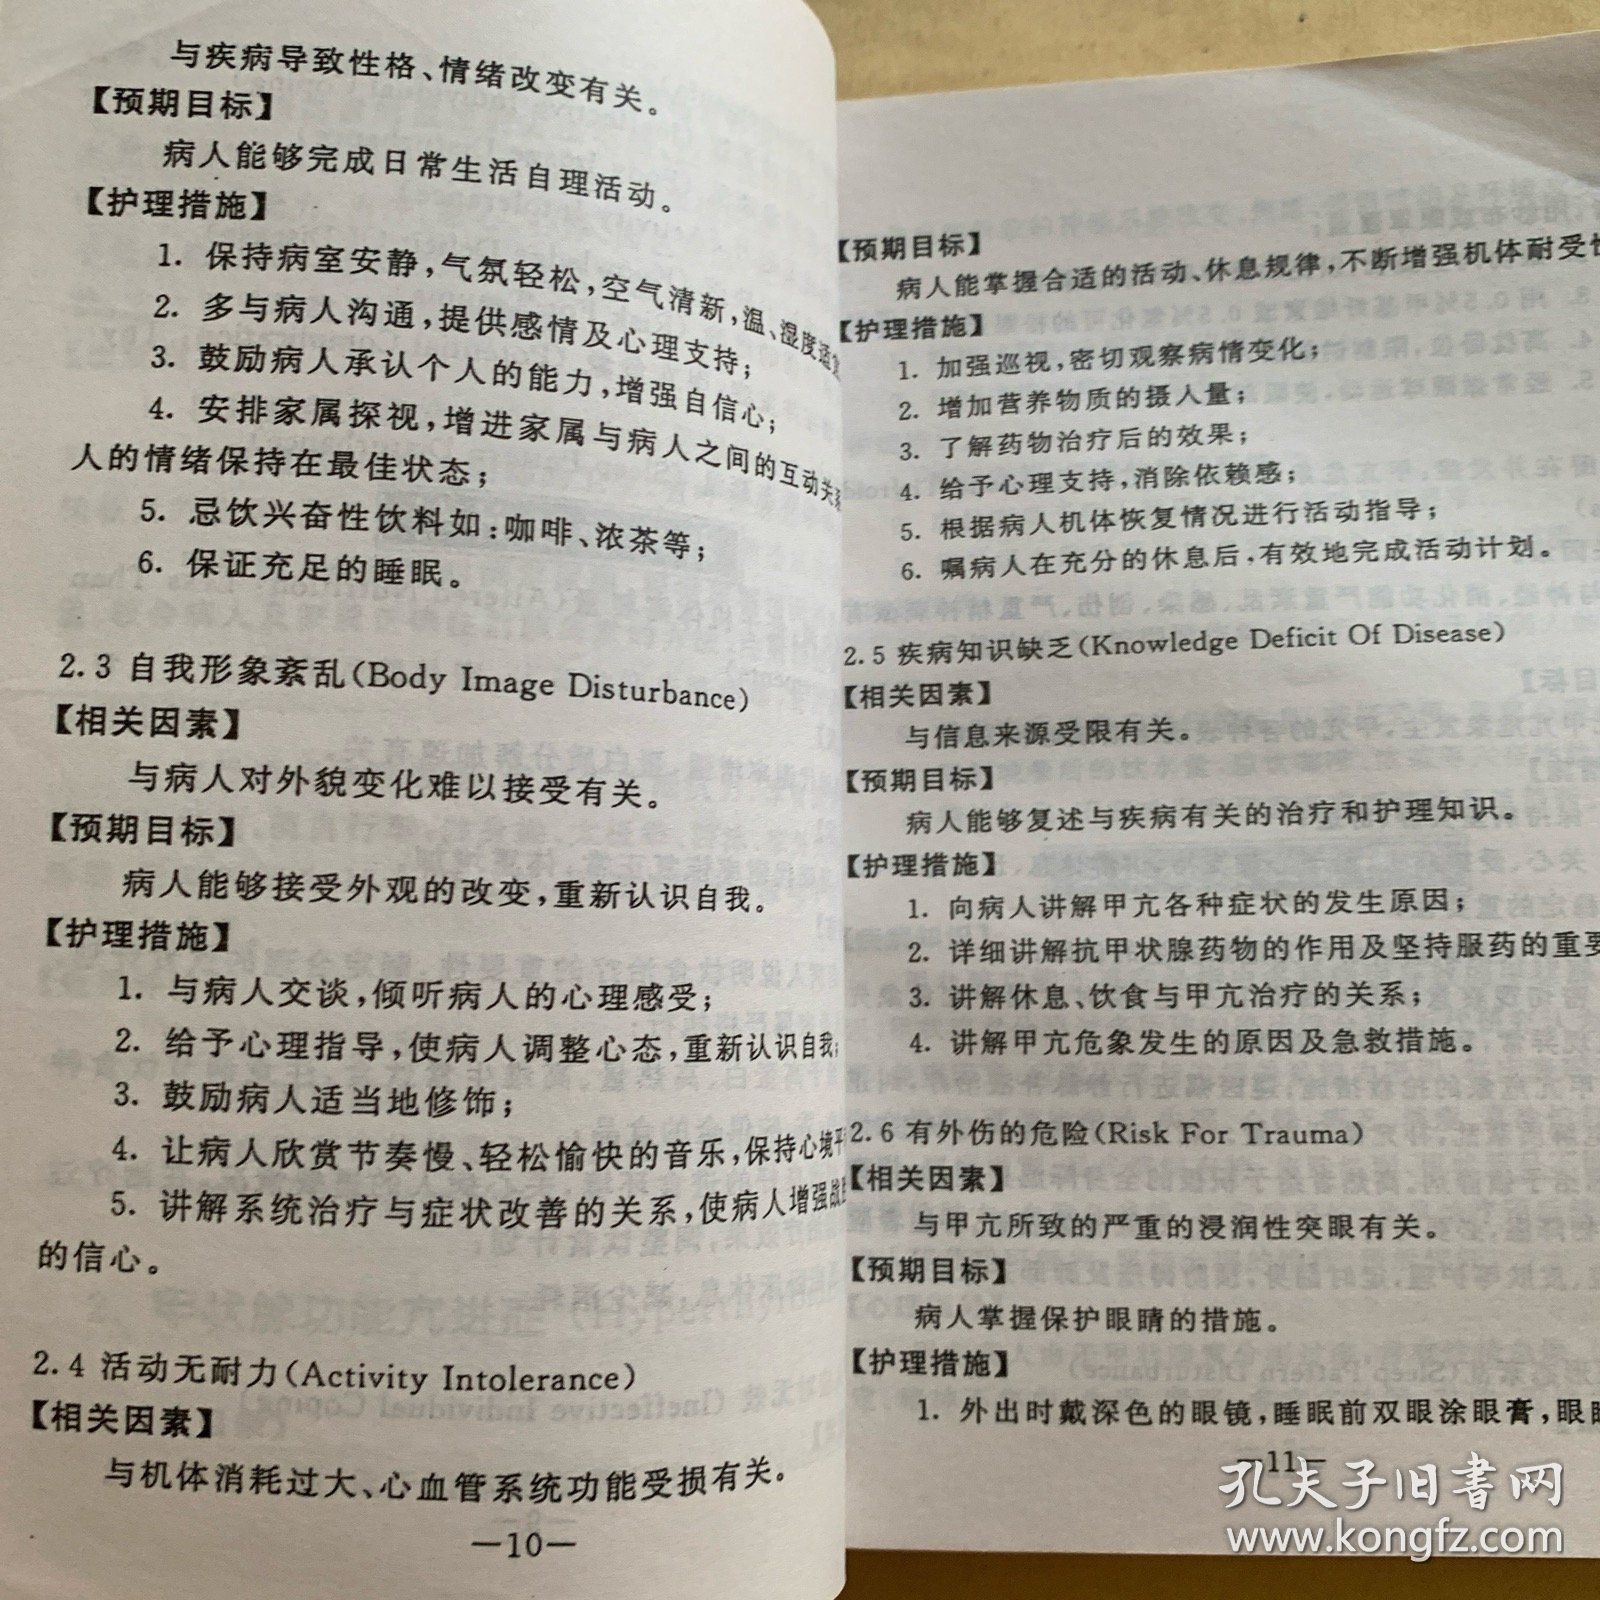 与疾病导致性格、情绪改变有关。
【预期目标】
病人能够完成日常生活自理活动。
【护理措施】
1. 保持病室安静，气氛轻松，空气清新，温、湿度适
2. 多与病人沟通，提供感情及心理支持；
3. 鼓励病人承认个人的能力，增强自信心；
4. 安排家属探视，增进家属与病人之间的互动关
人的情绪保持在最佳状态；
5. 忌饮兴奋性饮料如：咖啡、浓茶等；
6. 保证充足的睡眠。
2.3 自我形象紊乱(Body Image Disturbance)
【相关因素】
与病人对外貌变化难以接受有关。
【预期目标】
病人能够接受外观的改变，重新认识自我。
【护理措施】
1. 与病人交谈，倾听病人的心理感受；
2. 给予心理指导，使病人调整心态，重新认识自我；
3. 鼓励病人适当地修饰；
4. 让病人欣赏节奏慢、轻松愉快的音乐，保持心境平
5. 讲解系统治疗与症状改善的关系，使病人增强战
的信心。
2.4 活动无耐力(Activity Intolerance)
【相关因素】
与机体消耗过大、心血管系统功能受损有关。
—10—
【预期目标】
病人能掌握合适的活动、休息规律，不断增强机体耐受性
【护理措施】
1. 加强巡视，密切观察病情变化；
2. 增加营养物质的摄人量；
3. 了解药物治疗后的效果；
4. 给予心理支持，消除依赖感；
5. 根据病人机体恢复情况进行活动指导；
6. 嘱病人在充分的休息后，有效地完成活动计划。
2.5 疾病知识缺乏(Knowledge Deficit Of Disease)
【相关因素】
与信息来源受限有关。
【预期目标】
病人能够复述与疾病有关的治疗和护理知识。
【护理措施】
1. 向病人讲解甲亢各种症状的发生原因；
2. 详细讲解抗甲状腺药物的作用及坚持服药的重要
3. 讲解休息、饮食与甲亢治疗的关系；
4. 讲解甲亢危象发生的原因及急救措施。
2.6 有外伤的危险(Risk For Trauma)
【相关因素】
与甲亢所致的严重的浸润性突眼有关。
【预期目标】
病人掌握保护眼睛的措施。
【护理措施】
1. 外出时戴深色的眼镜，睡眠前双眼涂眼膏，眼睛
—11—
孔夫子旧书网
www.kongfz.com